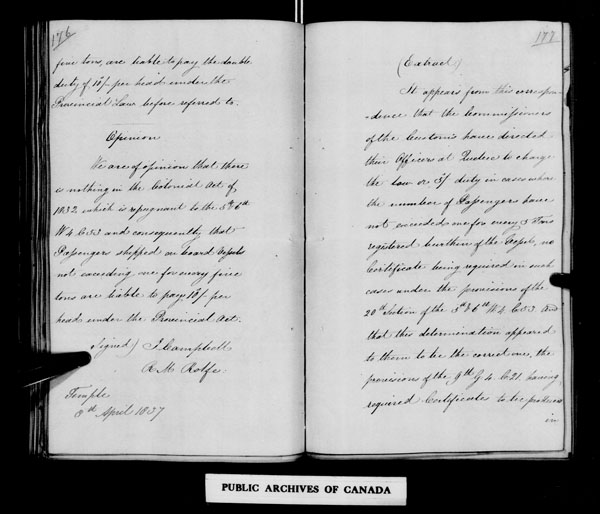 176
five tons, are liable to pay the double
duty of 10/- per head under the
Provincial Law before referred to.
Opinion
We are of opinion that there
is nothing in the Colonial Act of
1832 which is repugnant to the 5th & 6th
W 4 C 53 and consequently that
Passengers shipped on board Vessels
not exceeding one for every five
tons are liable to pay 10/- per
head under the Provincial Act.
Signed) J. Campbell
R. M. Rolfe
Temple
April 1837
177
(Extract)
It appears from this correspon
-dence that the Commissioners
of the Customs have directed
their Officers at Quebec to charge
the low or 5/ duty in cases where
the number of Passengers have
not exceeded one for every 5 Tons
registered burthen of the Vessel, no
Certificate being required in such
cases under the provisions of the
20th Section of the 5th & 6th W 4. C 53 and
that this determination appeared
to them to be the correct one, the
provisions of the 9th G. 4. C 21. having
required Certificates to be produced
in
PUBLIC ARCHIVES OF CANADA